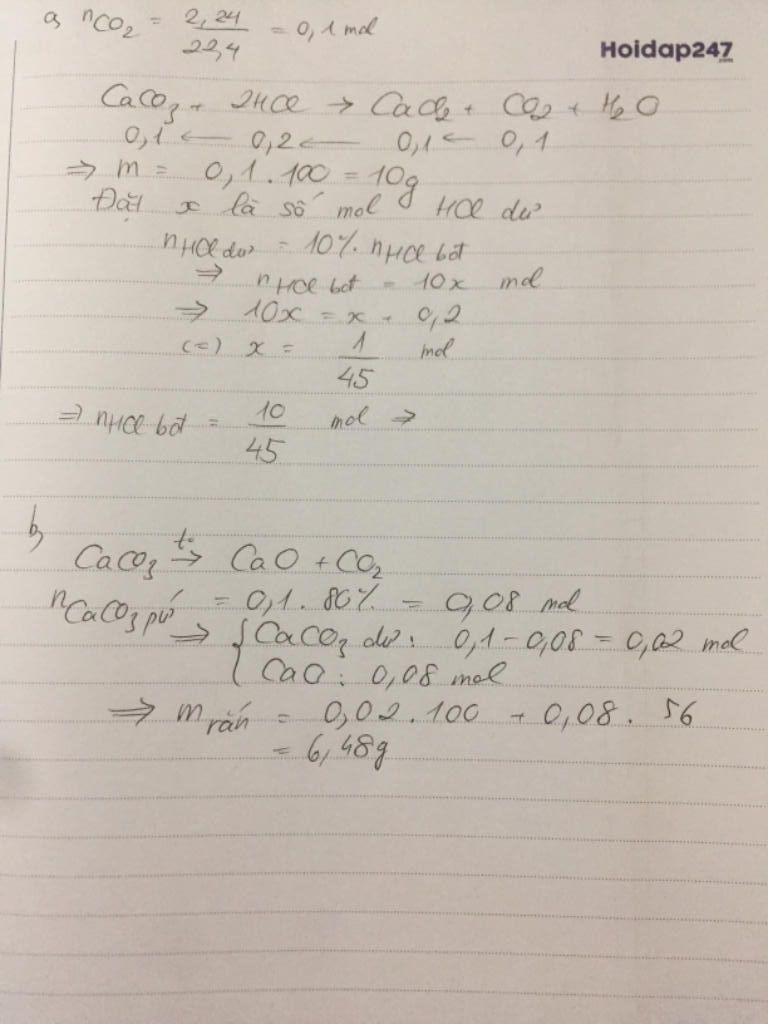 a, nCO₂ = 2,24/22,4 = 0,1 mol
Hoidap247.com
CaCO₃ + 2HCl → CaCl₂ + CO₂ + H₂O
0,1 ← 0,2 ← 0,1 ← 0,1
⇒ m = 0,1 . 100 = 10g
Đặt x là số mol HCl dư
nHCl dư = 10% nHCl bđ
⇒ nHCl bđ = 10x mol
⇒ 10x = x + 0,2
(=) x = 1/45 mol
⇒ nHCl bđ = 10/45 mol ⇒
b,
CaCO₃ →(t°) CaO + CO₂
nCaCO₃ pứ = 0,1 . 80% = 0,08 mol
⇒ { CaCO₃ dư : 0,1 - 0,08 = 0,02 mol
CaO : 0,08 mol
⇒ m rắn = 0,02 . 100 + 0,08 . 56
= 6,48g